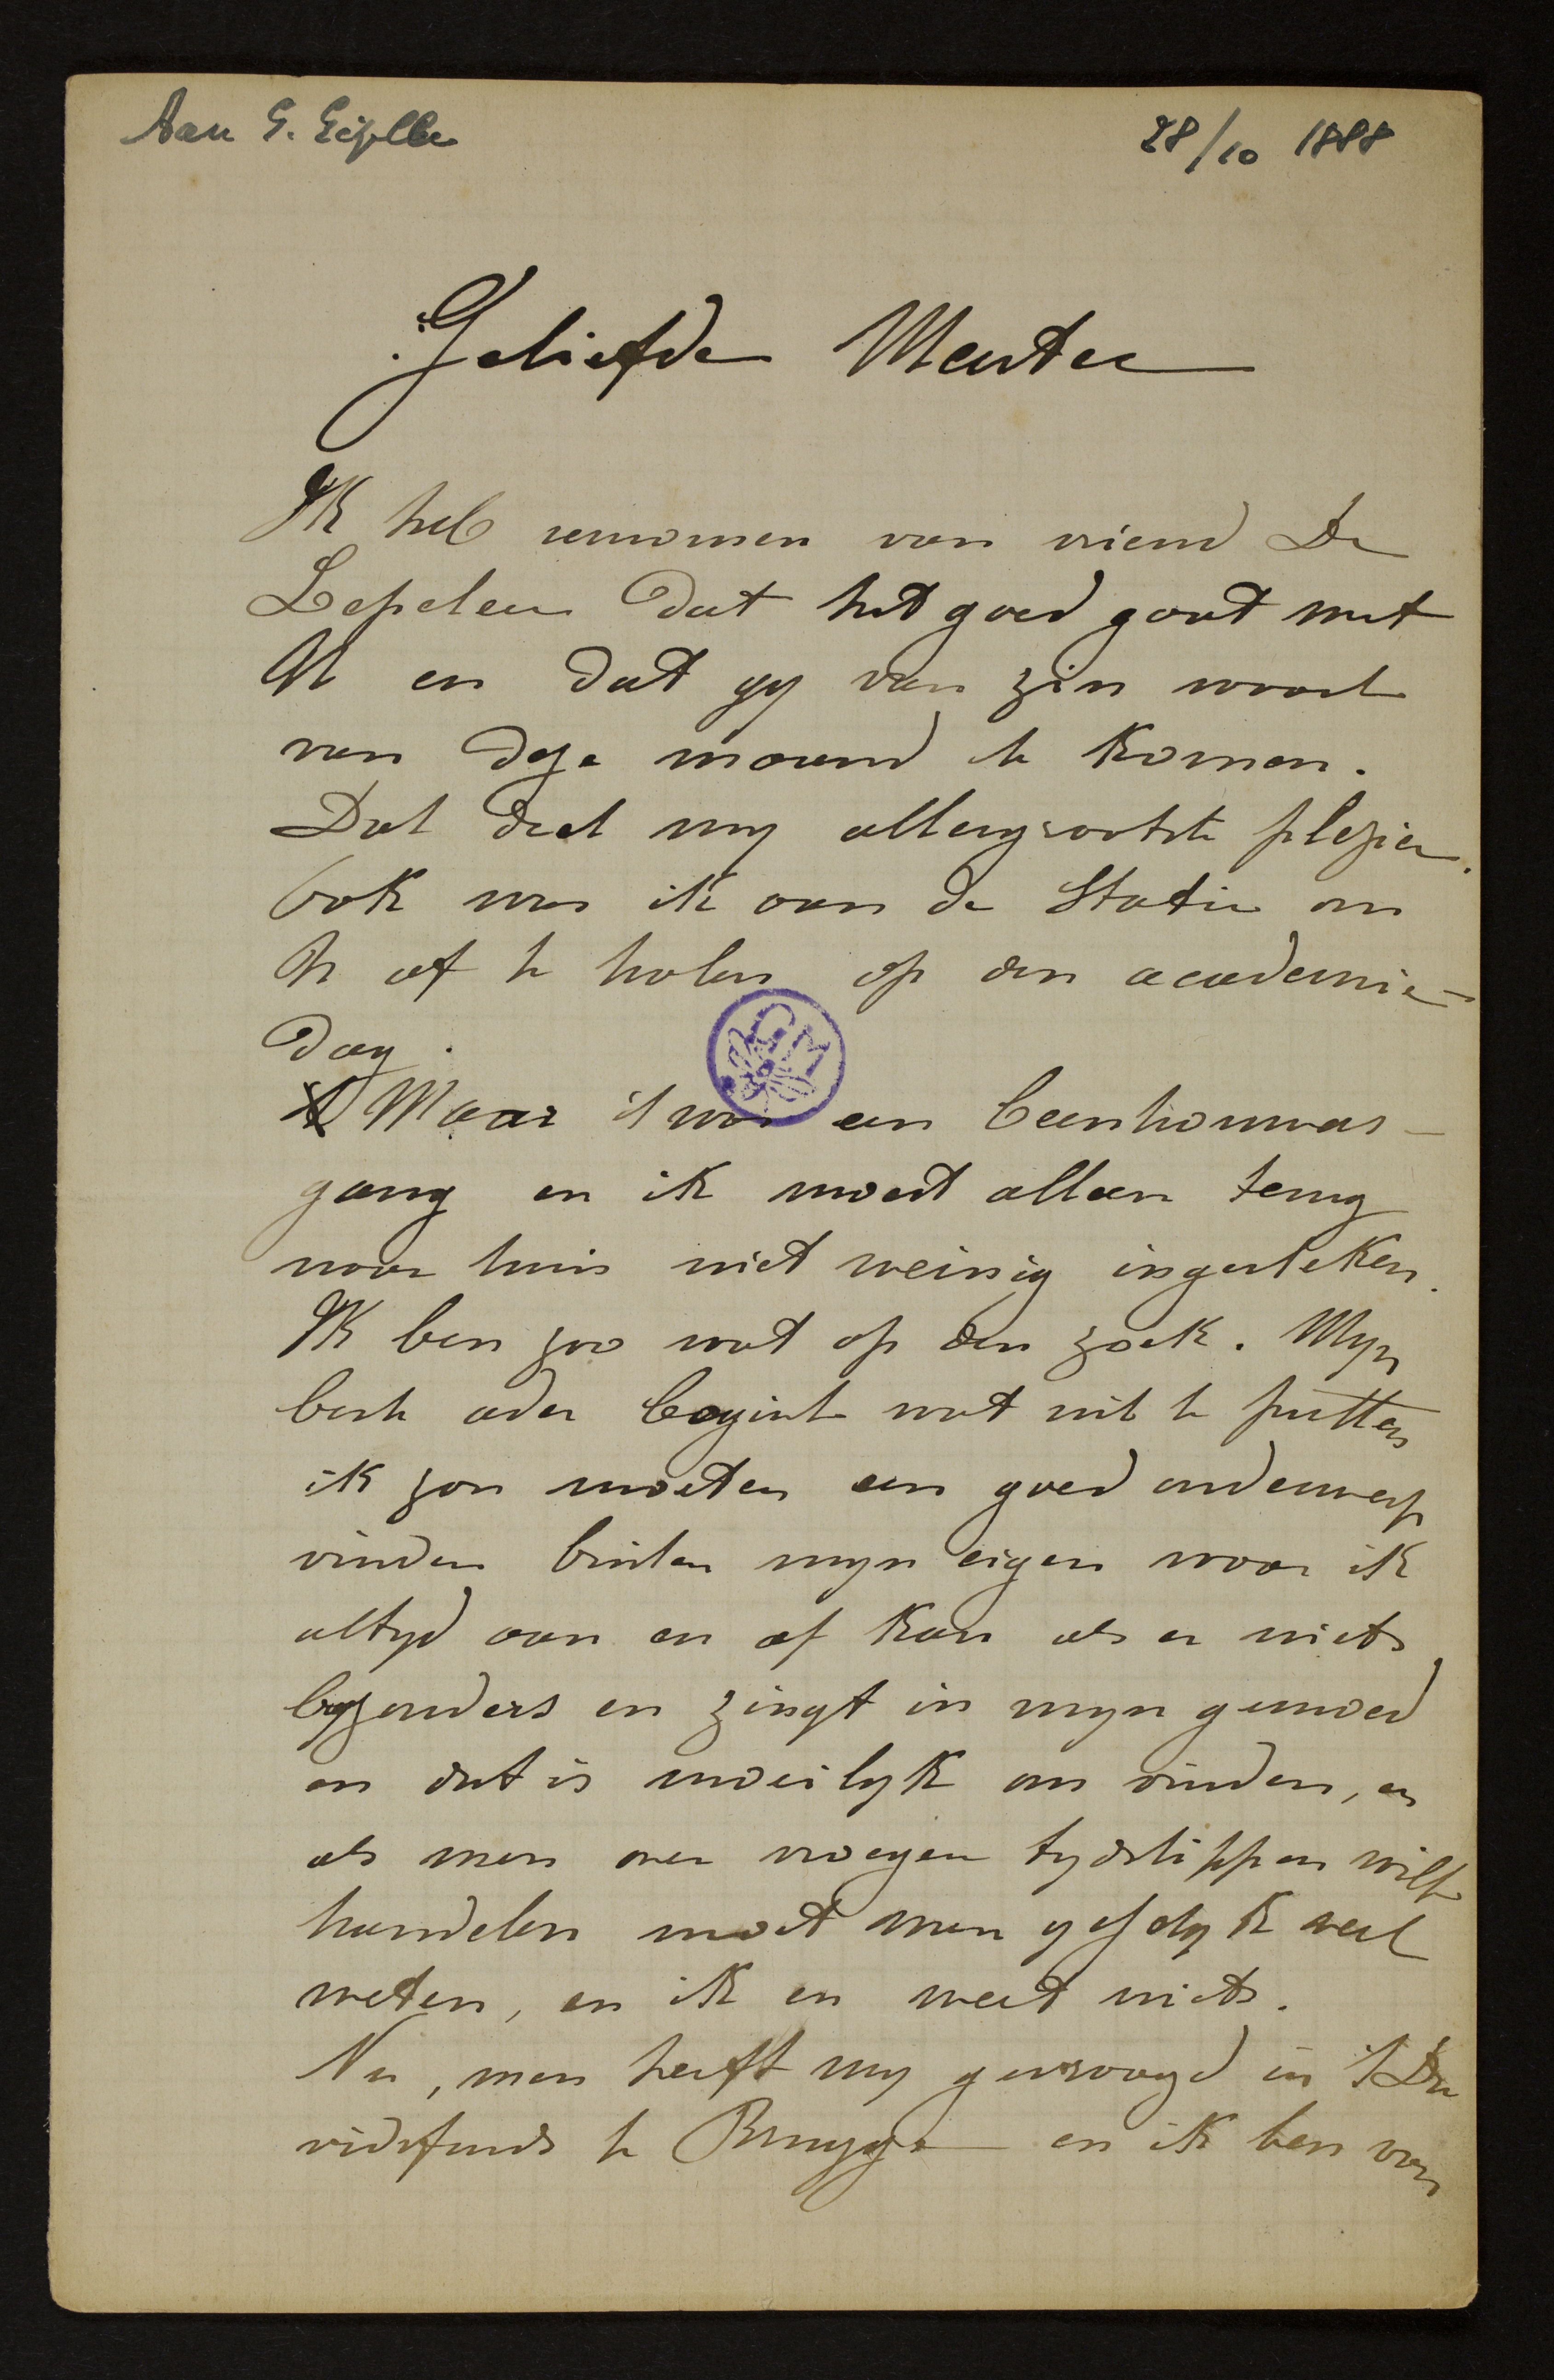 Aan G. Gezelle
28/10 1888
Geliefde Meester
Ik heb vernomen van vriend De
Lepeleer dat het goed gaat met
U en dat gy van zin waart
van deze maand te komen.
Dat deed my allergrootste plezier.
Ook was ik aan de Statie om
U af te halen op den academie-
dag.
Maar 't was een beenhouwers-
gang en ik moest alleen terug
naar huis niet weinig ingesteken.
Ik ben zoo wat op den zoek. Myn
beste ader begint wat uit te putten
ik zou moeten een goed onderwerp
vinden buiten myn eigen waar ik
altyd aan en af kan als er niets
byzonders en zingt in myn gemoed
en dat is moeilyk om vinden, en
als men over vroegere tydstippen wilt
handelen moet men veel
weten, en ik en weet niets.
Nu, men heeft my gevraagd in 't Da
vidsfonds te Brugge en ik ben van
GM